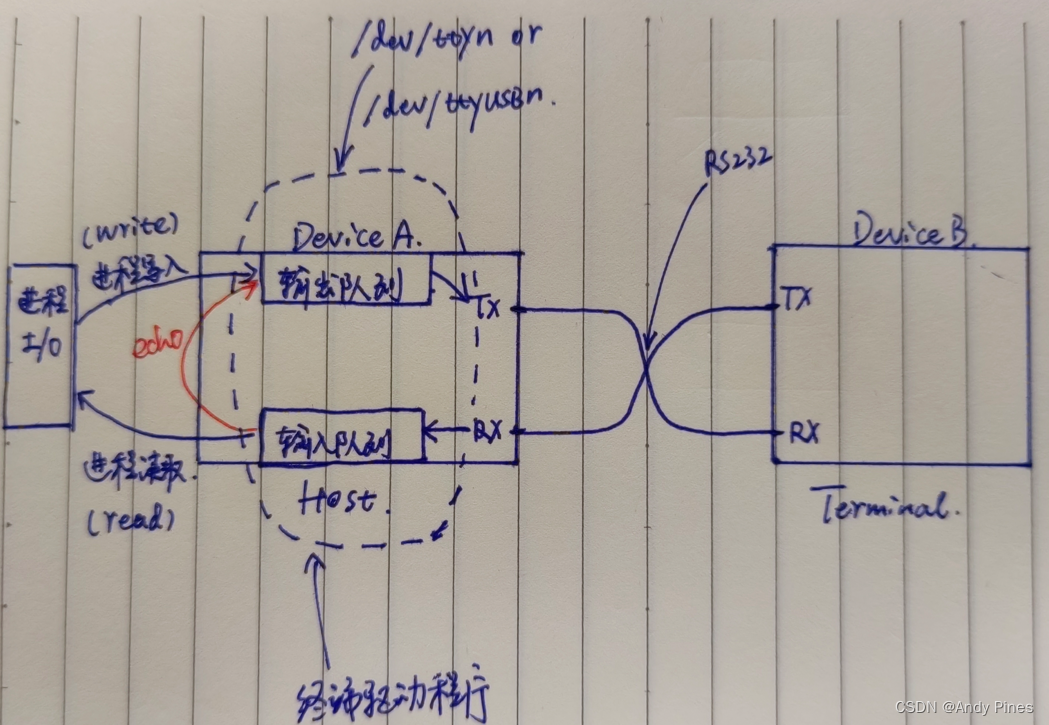 /dev/ttyn or
/dev/ttyUSBn.
RS232
(write)
进程写入
Device A.
Device B.
进程
I/O
输出队列
TX
TX
echo
输入队列
RX
RX
进程读取.
(read)
Host.
Terminal.
终端驱动程序
CSDN @Andy Pines